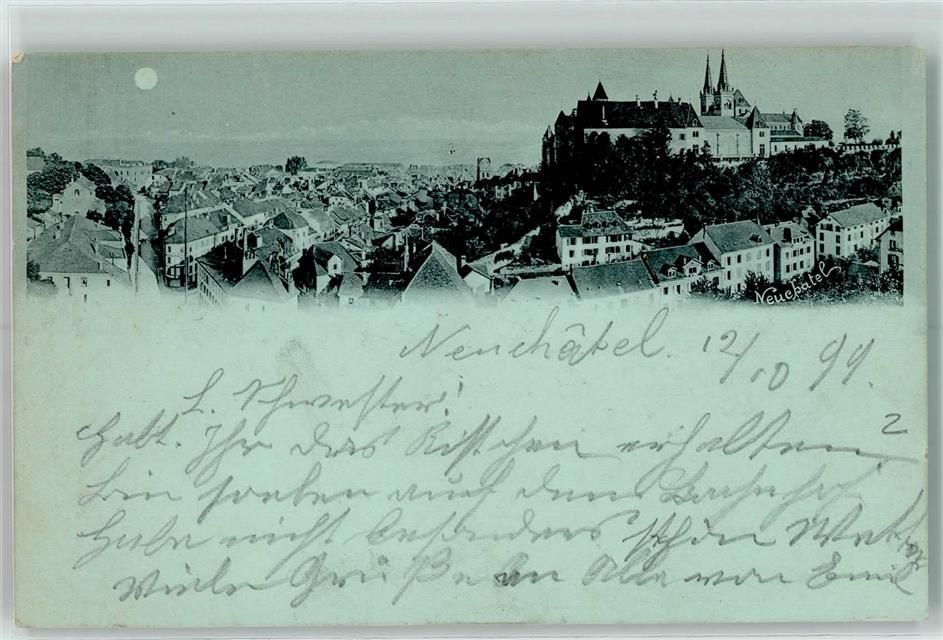 Neuchâtel
Neuchâtel. 12/10 99.
L. Schwester!
Habt Ihr das Kistchen erhalten ?
bin soeben auf dem Bahnhof
habe nicht besonders schön Wetter
Viele Grüße an Alle von Emil